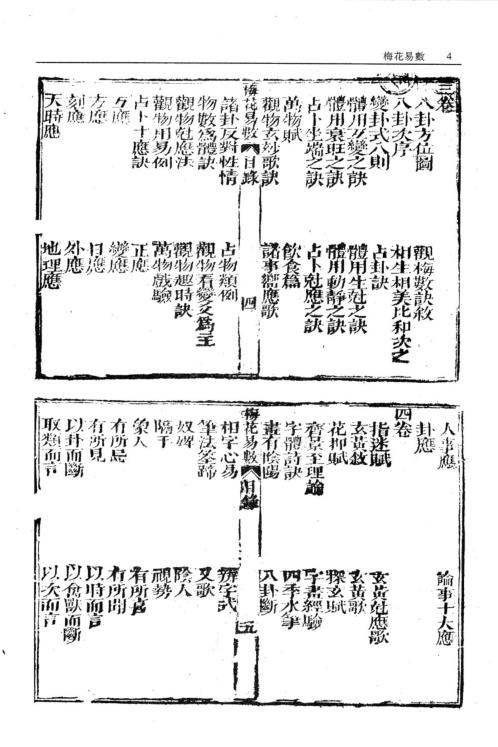 梅花易數 4
三卷
八卦方位圖
觀梅數訣敘
八卦次序
相生相美比和次之
變卦式八則
占卦訣
體用互變之訣
體用生尅之訣
體用衰旺之訣
體用動靜之訣
占卜坐端之訣
占卜尅應之訣
萬物賦
飲食篇
觀物玄妙歌訣
諸事響應歌
梅花易數 目錄 四
諸卦反對性情
占物類例
物數為體訣
觀物看變爻為主
觀物尅應法
觀物趣時訣
觀物用易例
萬物戲驗
占卜十應訣
正應
互應
變應
方應
日應
刻應
外應
天時應
地理應
人事應
論事十大應
卦應
四卷
指迷賦
玄黃尅應歌
玄黃敘
玄黃歌
花押賦
探玄賦
齊景至理論
字書經驗
字體詩訣
四季水筆
畫有陰陽
八卦斷
梅花易數 目錄 五
相字心易
辨字式
筆法筌蹄
又歌
奴婢
陰人
隔手
視勢
象人
有所喜
有所屬
有所聞
有所見
以時而言
以卦而斷
以禽獸而斷
取類而言
以次而言